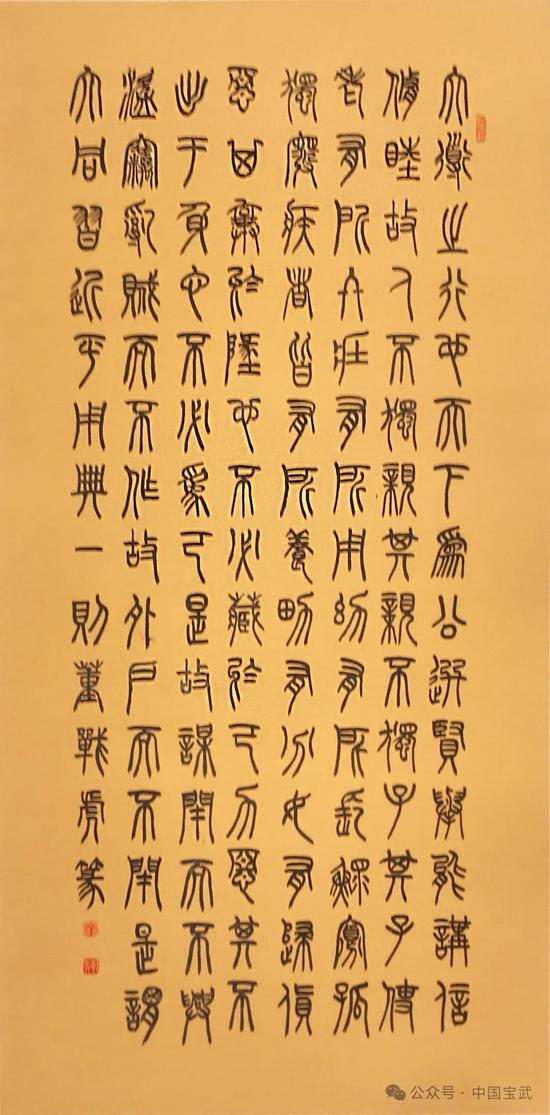 大道之行也天下為公選賢舉能講信
脩睦故人不獨親其親不獨子其子使
老有所終壯有所用幼有所長鰥寡孤
獨廢疾者皆有所養男有分女有歸貨
惡其棄於地也不必藏於己力惡其不
出于身也不必為己是故謀閉而不興
盜竊亂賊而不作故外戶而不閉是謂
大同習近平用典一則董戰虎篆
公众号·中国宝武